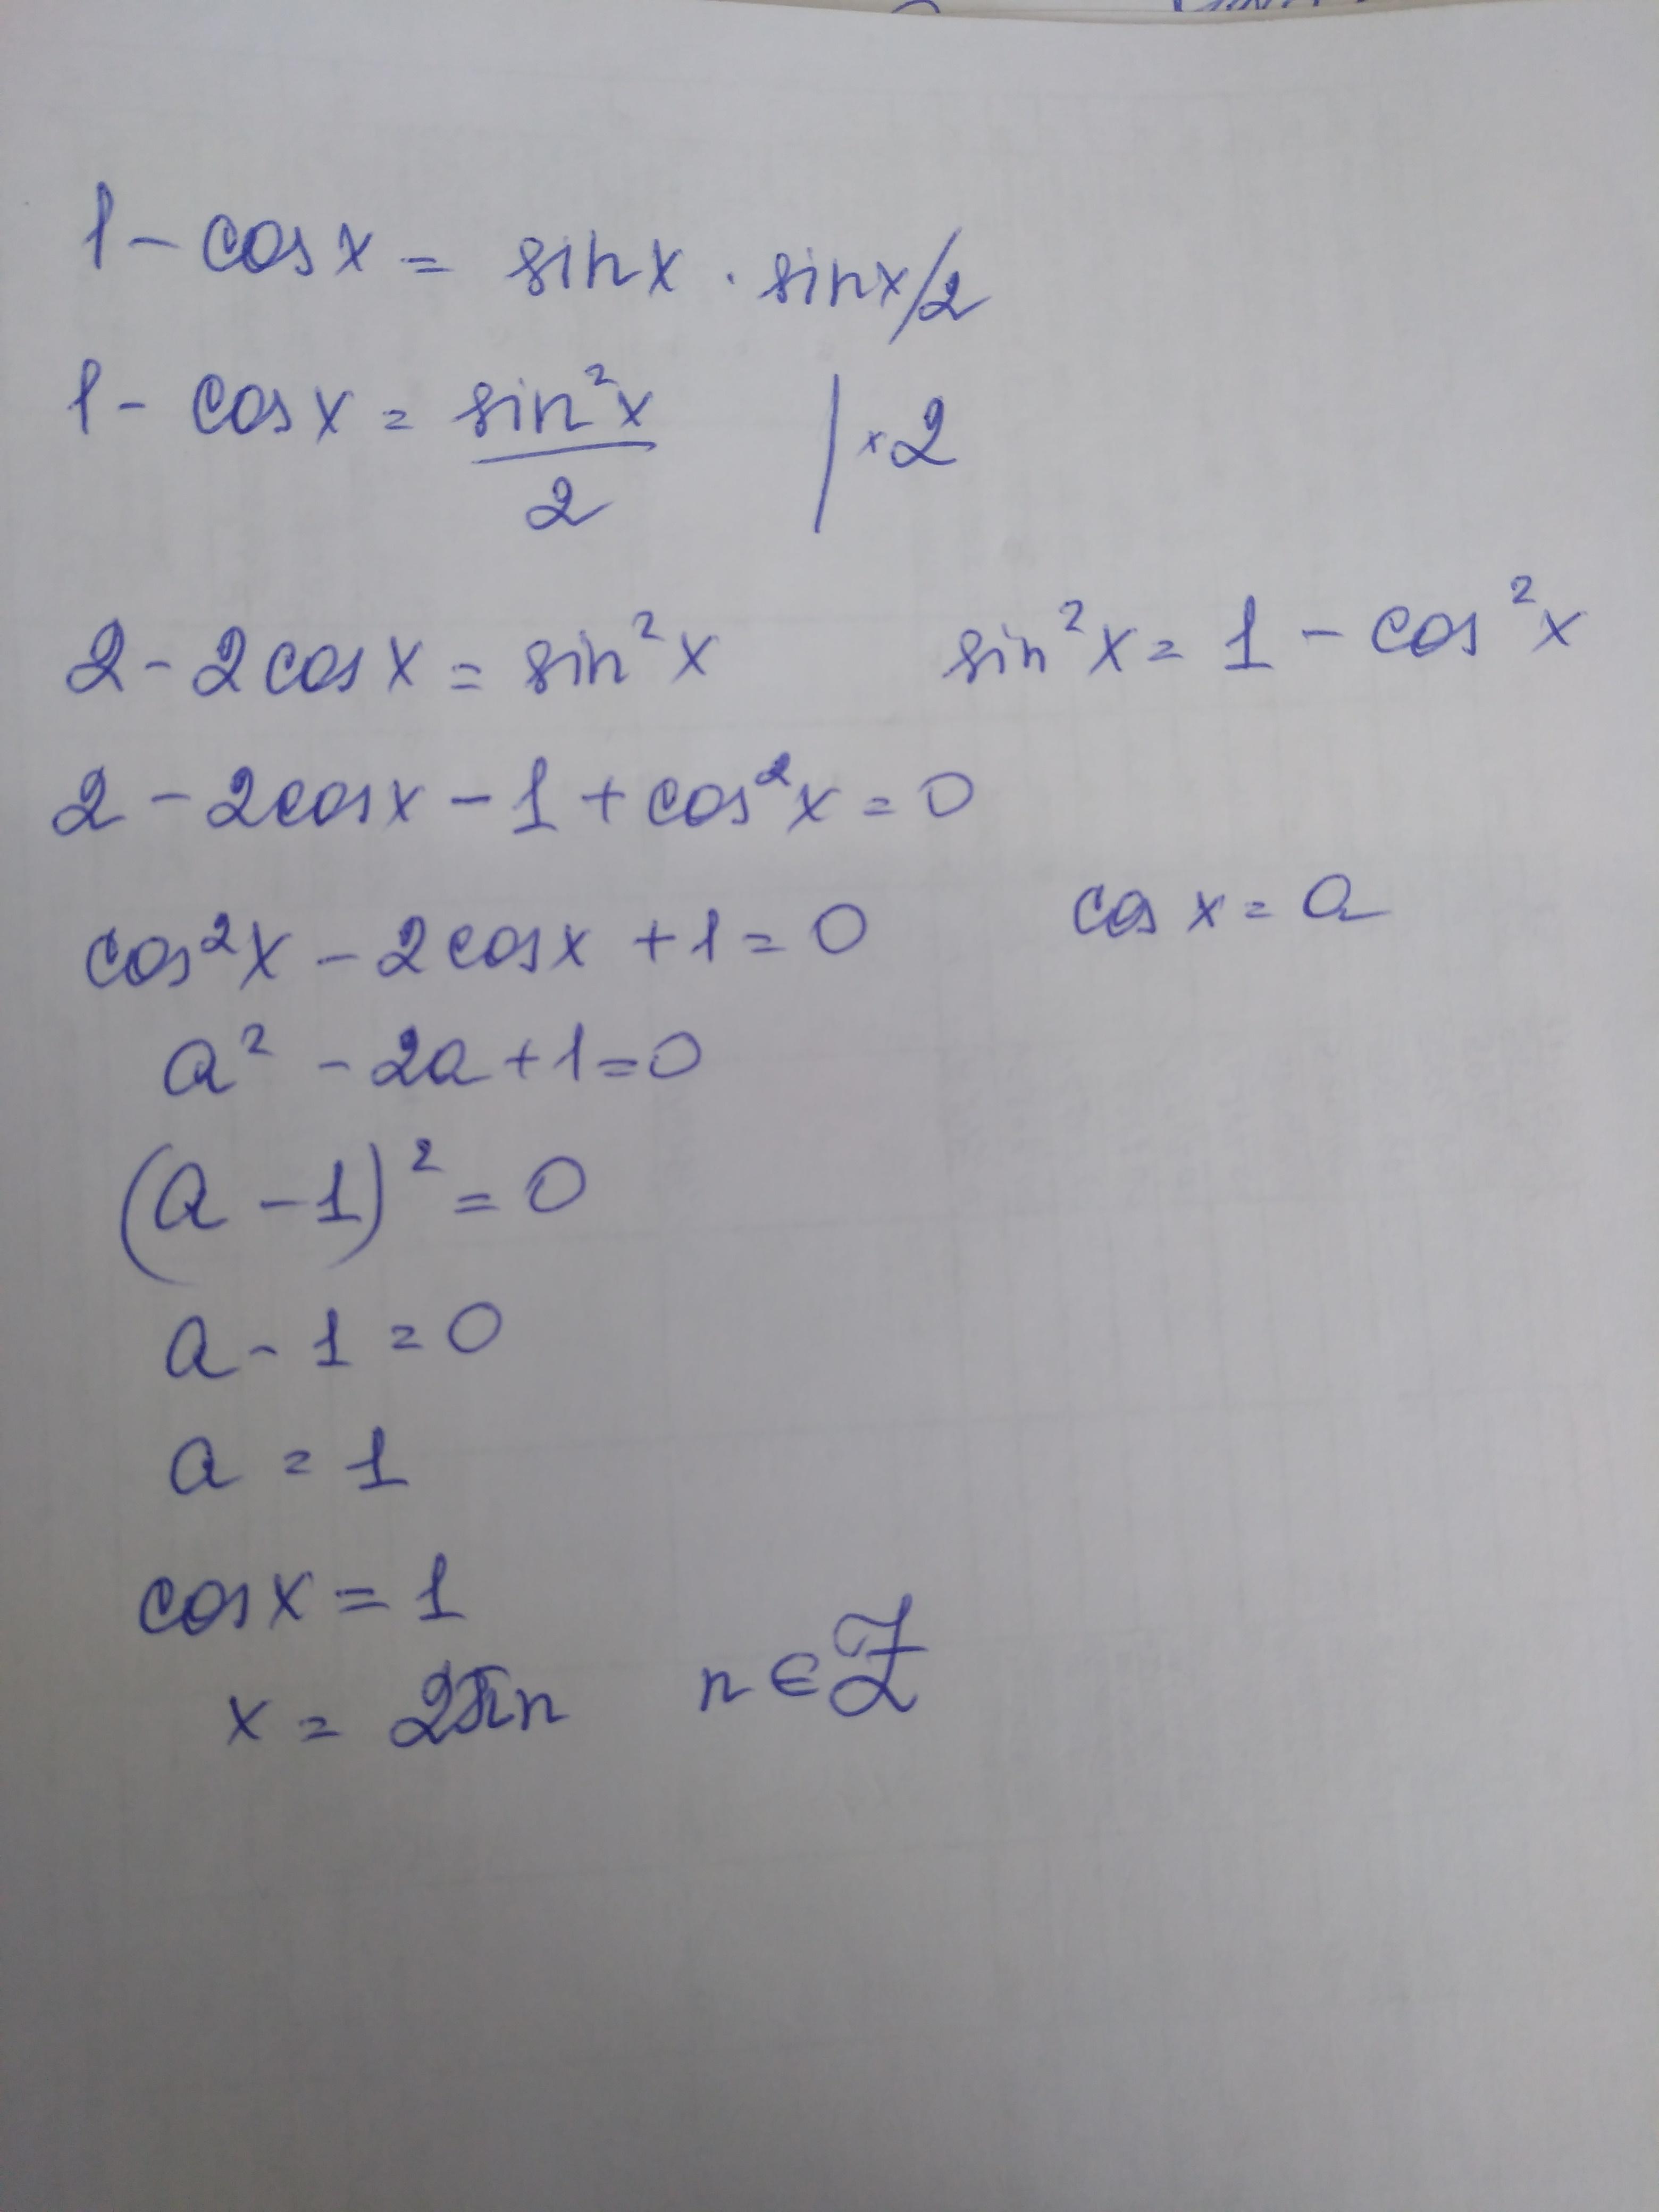 1 - cos x = sin x · sin x/2
1 - cos x = sin²x / 2 | × 2
2 - 2 cos x = sin² x sin² x = 1 - cos² x
2 - 2 cos x - 1 + cos² x = 0
cos² x - 2 cos x + 1 = 0 cos x = a
a² - 2a + 1 = 0
(a - 1)² = 0
a - 1 = 0
a = 1
cos x = 1
x = 2πn n ∈ Z